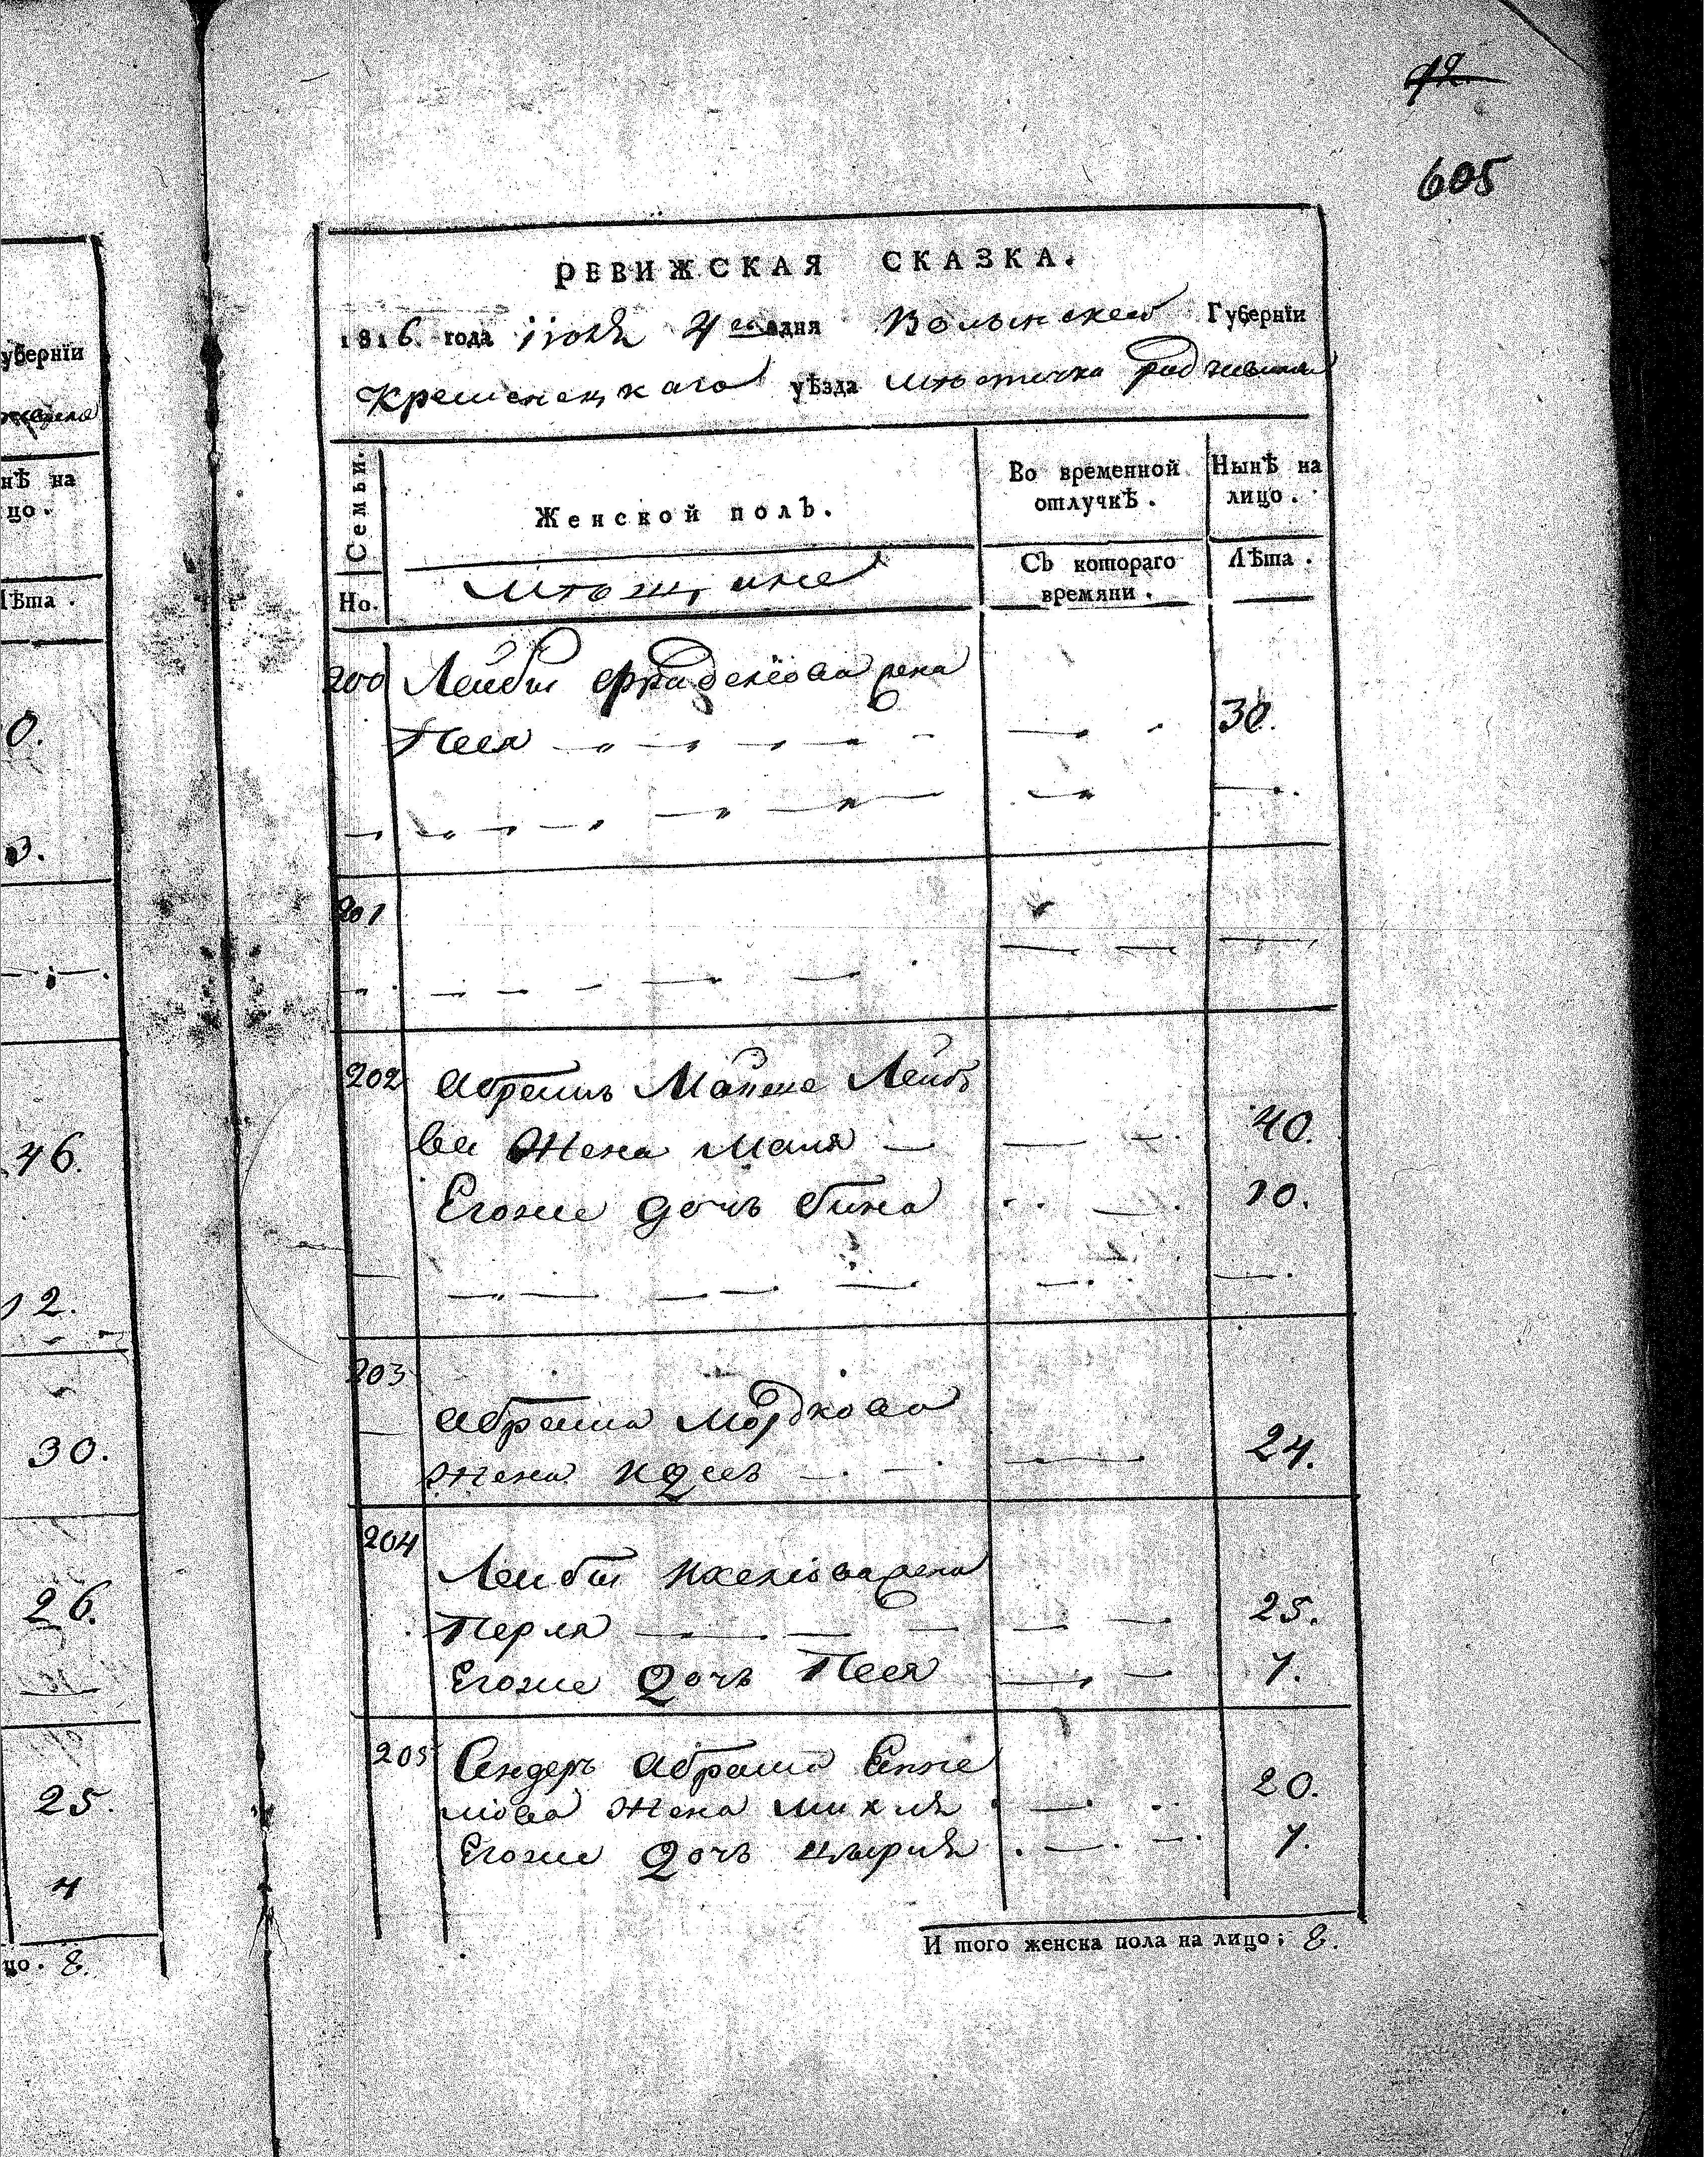 42
605
убернїи
нѢ на
цо.
Лѣта.
0.
3.
46.
12.
30.
26.
25.
4
цо. 8.
РЕВИЖСКАЯ СКАЗКА.
1816. года іюля 4го дня Волынской Губернїи
Кременецкаго уѣзда мѣстечка радзивилова
Семьи.
Но.
Женской полъ.
Во временной отлучкѢ.
НынѢ на лицо.
мѣщане
Съ котораго времяни.
Лѣта.
200 Лейбы жена
Песя 30.
201
202 Абрамъ Мошка Лейбо
ва Жена маля 40.
Егоже дочь бина 10.
203
абрама Мордкова
жена 24.
204
Лейбы жена
Перля 25.
Егоже Дочь Песя 7.
205 Сендеръ абрама
мова жена михля 20.
Егоже Дочь цырля 7.
И того женска пола на лицо; 8.